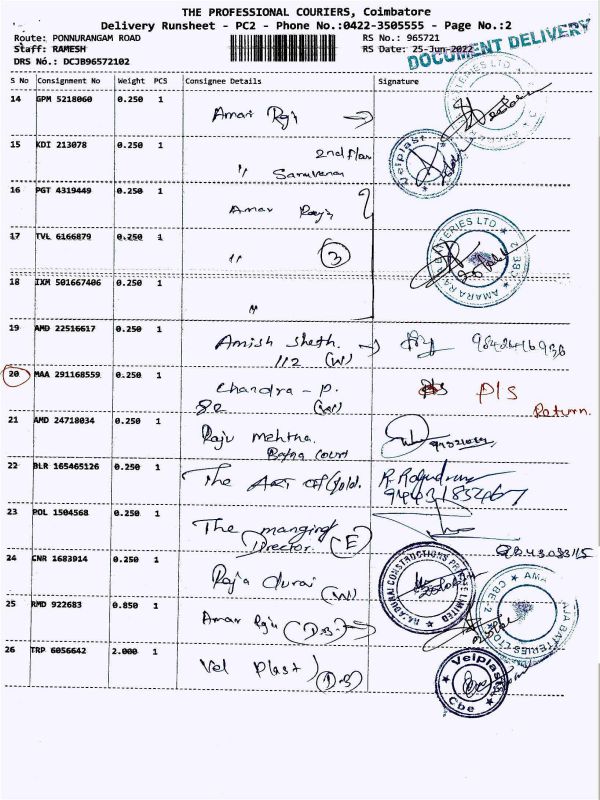 THE PROFESSIONAL COURIERS, Coimbatore
Delivery Runsheet - PC2 - Phone No.:0422-3505555 - Page No.:2
Route: PONNURANGAM ROAD RS No.: 965721
Staff: RAMESH RS Date: 25-Jun-2022
DOCUMENT DELIVERY
DRS No.: DCJB96572102
S No Consignment No Weight PCS Consignee Details Signature
14 GPM 5218060 0.250 1
Amar Raj
15 KDI 213078 0.250 1
2nd floor
" Saravanan
Velplast
16 PGT 4319449 0.250 1
Amar Raj
17 TVL 6166879 0.250 1
" 3
AMARA RAJA BATTERIES LTD
18 IXM 501667406 0.250 1
"
19 AMD 22516617 0.250 1
Amish Sheth.
112 (W)
20 MAA 291168559 0.250 1
Chandra - P.
82 (W)
P/S
Return.
21 AMD 24718034 0.250 1
Raju Mehtha.
Ratna Court
22 BLR 165465126 0.250 1
The Art of Gold.
23 POL 1504568 0.250 1
The manging
Director. (E)
24 CNR 1683914 0.250 1
Raja durai
(W)
CONSTRUCTIONS PRIVATE LIMITED
25 RMD 922683 0.850 1
Amar Raju
26 TRP 6056642 2.000 1
Vel Plast
Velplast
Cbe